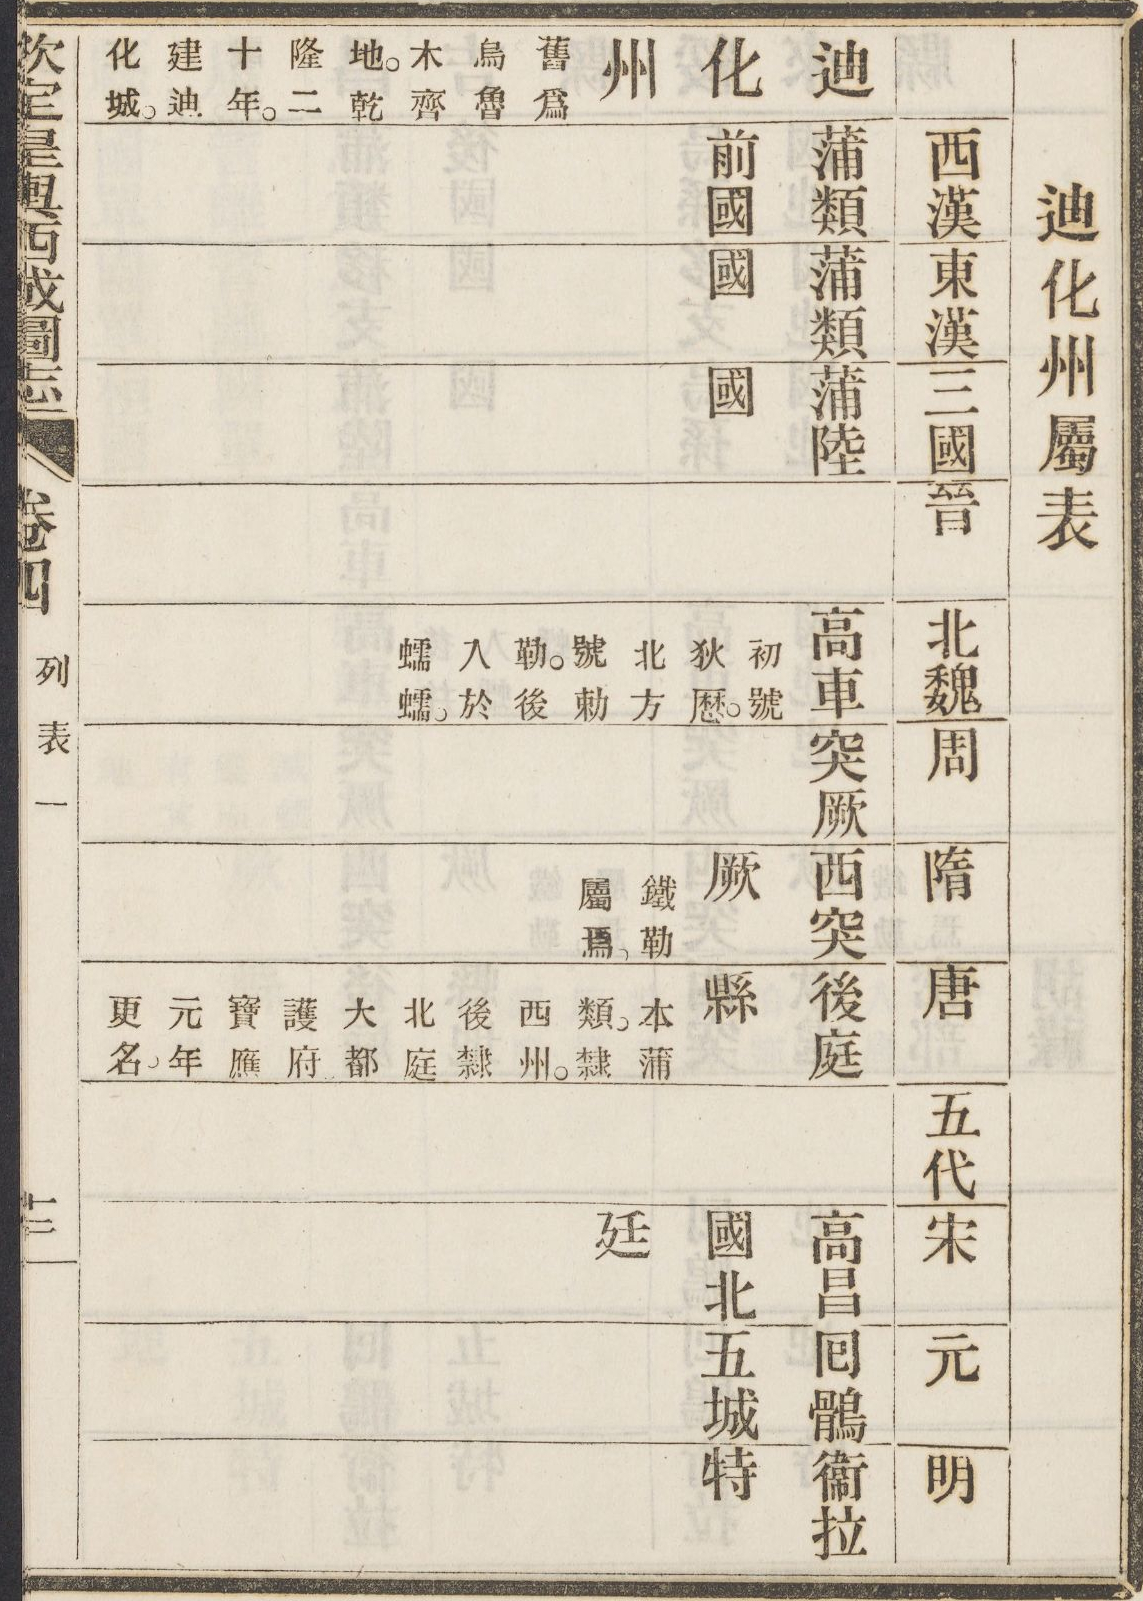 迪化州屬表
西漢
東漢
三國
晉
北魏
周
隋
唐
五代
宋
元
明
迪化州 舊爲烏魯木齊地。乾隆二十年。建迪化城。
蒲類前國
蒲類國
蒲陸國
高車 初號狄歷。北方號勅勒。後入於蠕蠕。
突厥
西突厥 鐵勒屬焉。
後庭縣 本蒲類。隸西州。後隸北庭大都護府寶應元年更名。
高昌國北廷
囘鶻五城
衞拉特
欽定皇輿西域圖志 卷四 列表一